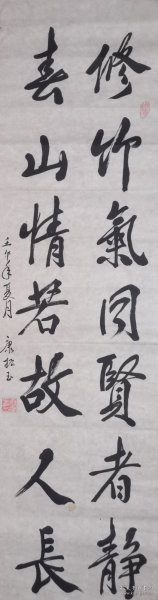 修竹氣同賢者靜
春山情若故人長
壬午年夏月 康拓玉